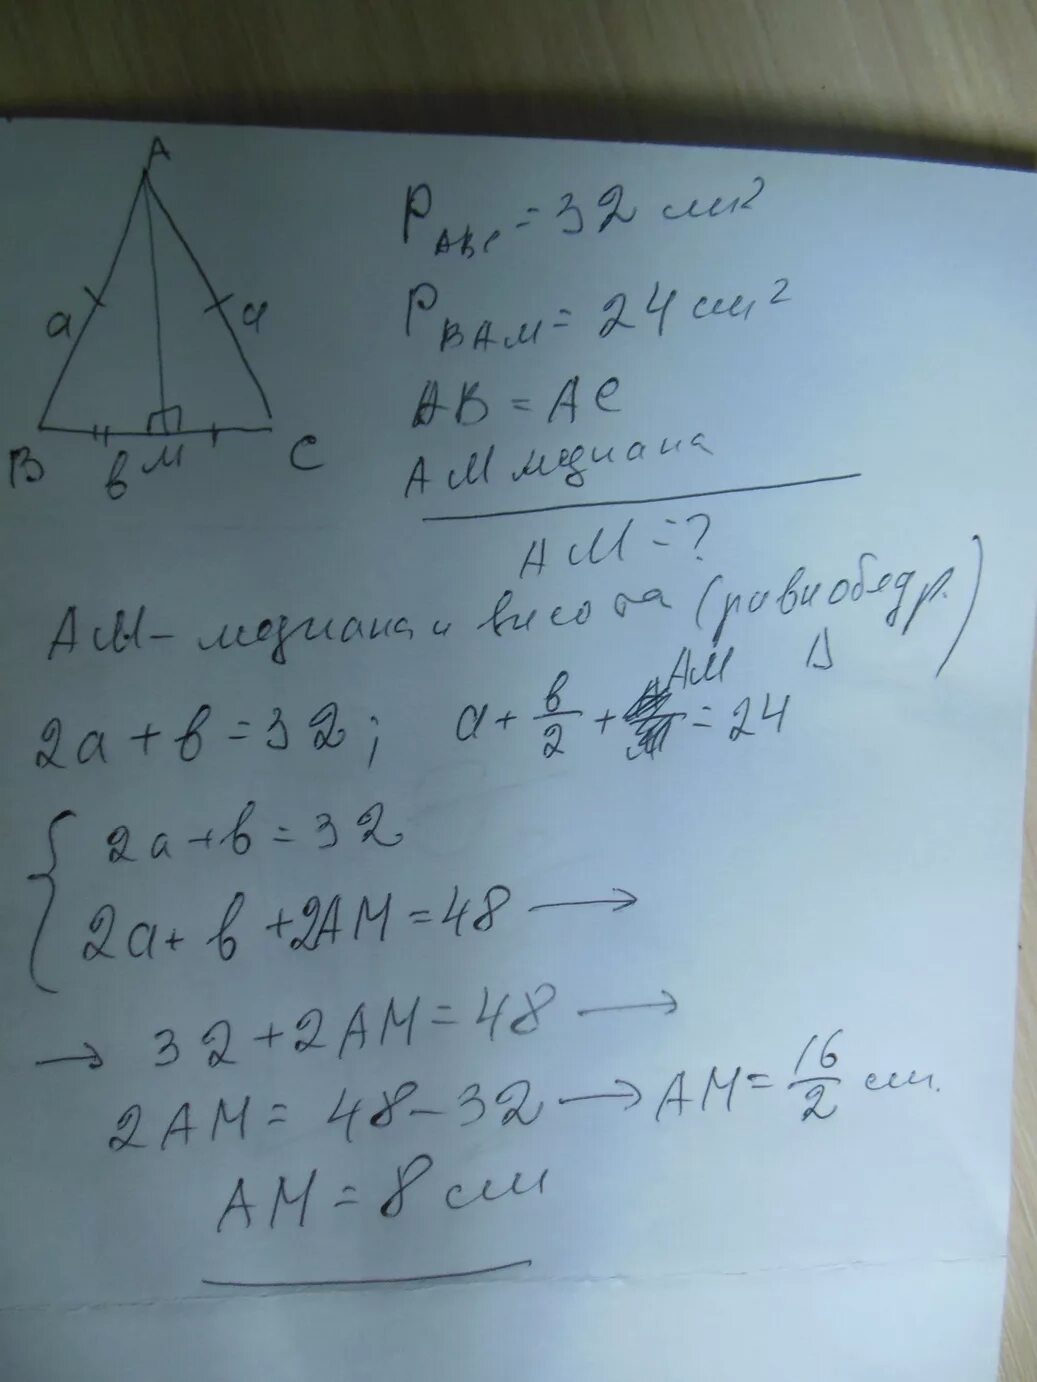 A
a a
B в М C
P_ABC = 32 см²
P_BAM = 24 см²
AB = AC
AM медиана
AM = ?
AM – медиана и висота (равнобедр. Δ)
2a + в = 32; a + в/2 + AM = 24
{ 2a + в = 32
2a + в + 2AM = 48 →
→ 32 + 2AM = 48 →
2AM = 48 – 32 → AM = 16/2 см.
AM = 8 см